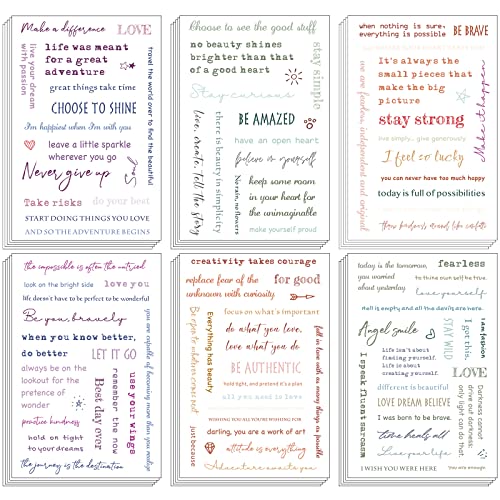 Make a difference
LOVE
life was meant
for a great
adventure
live your dream
with passion
great things take time
travel the world over to find the beautiful
CHOOSE TO SHINE
I'm happiest when I'm with you
leave a little sparkle
wherever you go
Never give up
Soul
Take risks
do your best
START DOING THINGS YOU LOVE
AND SO THE ADVENTURE BEGINS
Choose to see the good stuff
no beauty shines
brighter than that
of a good heart
stay simple
Stay curious
live, create, tell the story
there is beauty in simplicity
BE AMAZED
have an open heart
believe in yourself
No rain, no flowers
keep some room
in your heart for
the unimaginable
make yourself proud
when nothing is sure,
everything is possible
BE BRAVE
It's always the
small pieces that
make the big
picture
we are fearless, independent and original
stay strong
Make it happen
live simply, give generously
I feel so lucky
you can never have too much happy
today is full of possibilities
throw kindness around like confetti
the impossible is often the untried
look on the bright side
love you
life doesn't have to be perfect to be wonderful
Be you, bravely
when you know better,
do better
LET IT GO
you are capable of becoming more than you realize
always be on the
lookout for the
presence of
wonder
Best day over
remember the now
use your wings
practice kindness
hold on tight
to your dreams
the journey is the destination
creativity takes courage
replace fear of the
unknown with curiosity
for good
Be open to whatever comes next
Everything has beauty
focus on what's important
do what you love,
love what you do
BE AUTHENTIC
hold tight, and pretend it's a plan
all you need is love
fall in love with as many things as possible
WISHING YOU ALL YOU'RE WISHING FOR
darling, you are a work of art
just because
attitude is everything
Adventure awaits you
today is the tomorrow,
you worried
about yesterday
fearless
to thine own self be true.
love yourself
Hell is empty and all the devils are here.
Angel smile
STAY WILD
I got this.
I am fashion
life isn't about
finding yourself.
life is about
creating yourself.
LOVE
I speak fluent sarcasm
different is beautiful
LOVE DREAM BELIEVE
I was born to be brave.
Darkness cannot
drive out darkness:
only light can do that.
Time heals all
Live your life
I WISH YOU WERE HERE
You are enough.